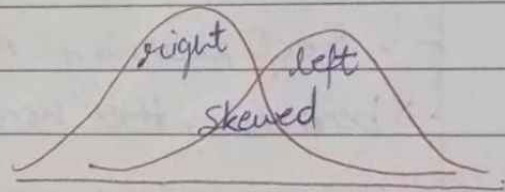 right left
skewed